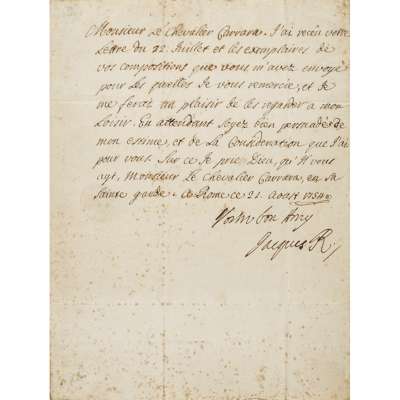 Monsieur Le Chevalier Carrara. J'ai receu votre
Lettre du 22 Juillet et les exemplaires de
vos compositions que vous m'avez envoyé
pour les quelles Je vous remercie, et Je
me feray un plaisir de les regarder a mon
Loisir. En attendant soyez bien persuadé de
mon estime, et de la Consideration que J'ai
pour vous. Sur ce Je prie Dieu, qu'Il vous
ayt, Monsieur Le Chevalier Carrara, en sa
Sainte garde. a Rome ce 21 Aoust
Votre bon Amy
Jacques R.